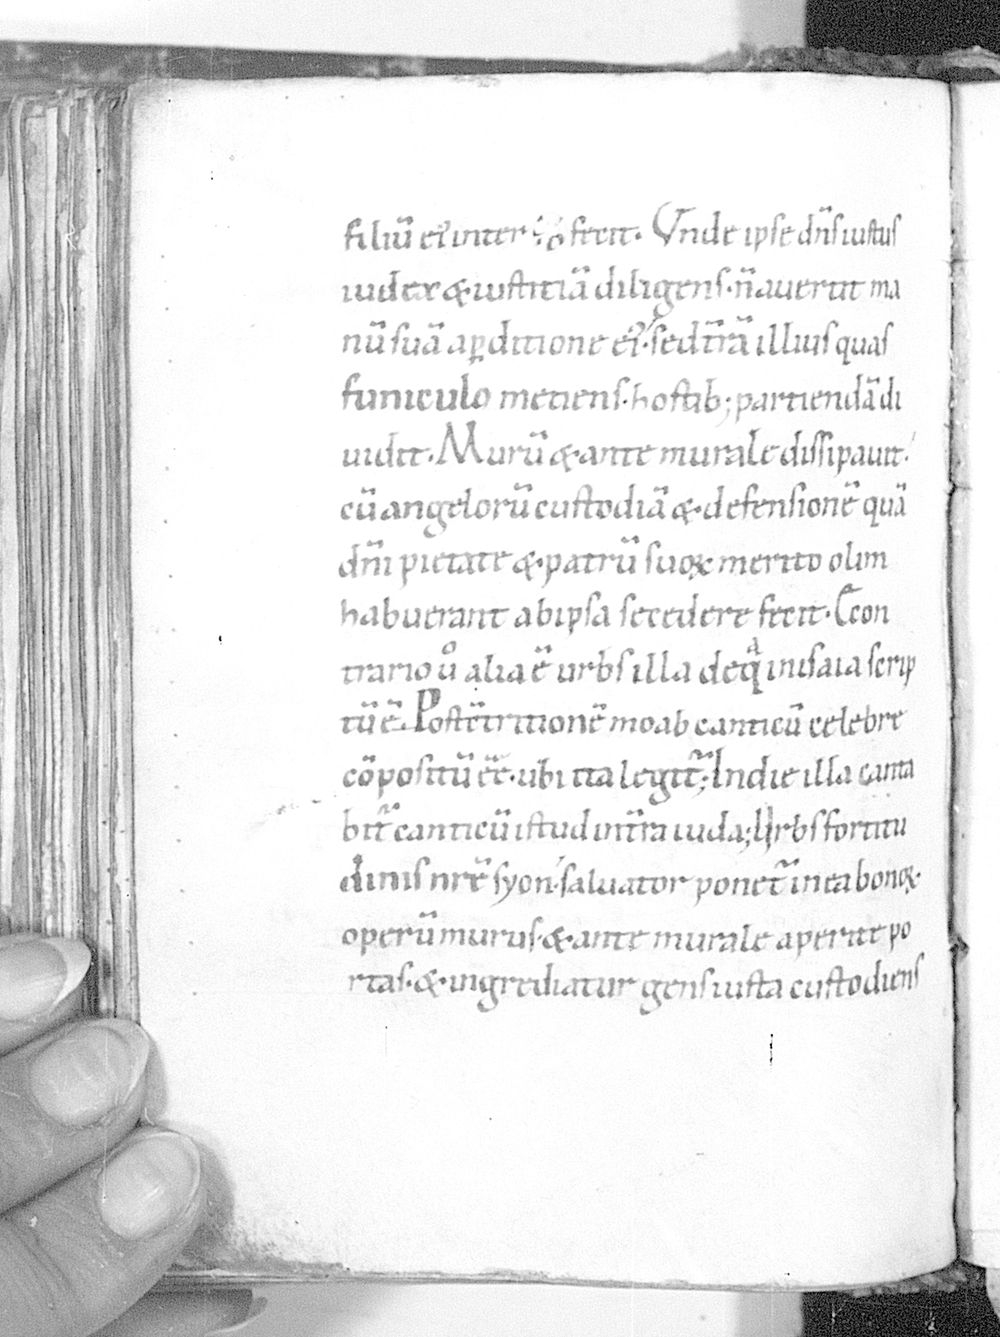 filiū ei' inter fecit. Vnde ipse dn̄s iustus
iudex & iustitiā diligens. n̄ auertit ma
nū suā a ꝑditione ei'. sed tr̄ā illius quas
funiculo metiens. hostib; partiendā di
uidit. Murū & ante murale dissipauit.
cū angelorū custodiā & defensionē quā
dn̄i pietate & patrū suoꝝ merito olim
habuerant ab ipsa secedere fecit. E con
trario ů alia ē urbs illa de qͣ in isaia scrip
tū ē. Post ꝯtritionē moab canticū celebre
cōpositū eē. ubi ita legit̄; In die illa canta
bit̄ canticū istud in tr̄a iuda; Urbs fortitu
dinis nr̄ē syon. saluator ponet̄ in ea bonoꝝ
operū murus. & ante murale aperite po
rtas. & ingrediatur gens iusta custodiens